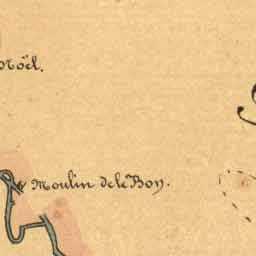 Noël.
Moulin de le Boy.